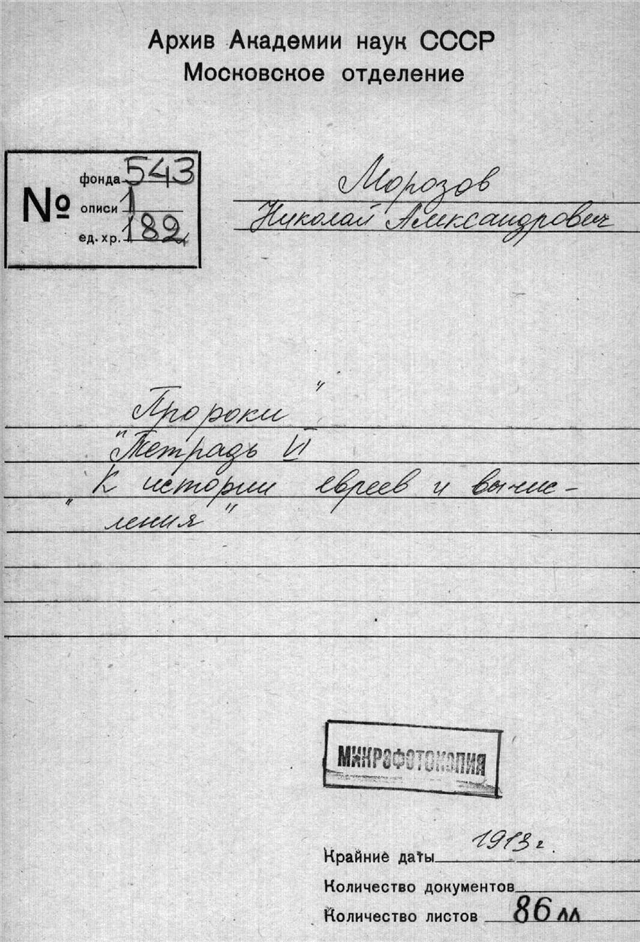 Архив Академии наук СССР
Московское отделение
№
фонда 543
описи 1
ед. хр. 182
Морозов
Николай Александрович
Пророки"
"Тетрадь VI
"К истории евреев и вычис-
ления"
МИКРОФОТОКОПИЯ
Крайние даты 1913 г.
Количество документов
Количество листов 86 лл